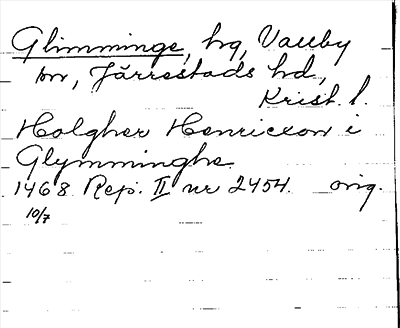 Glimminge, hg, Vallby
sn, Järrestads hd,
Krist. l.
Holgher Henricxon i
Glymminghe
1468 Rep. II nr 2454. orig.
10/7